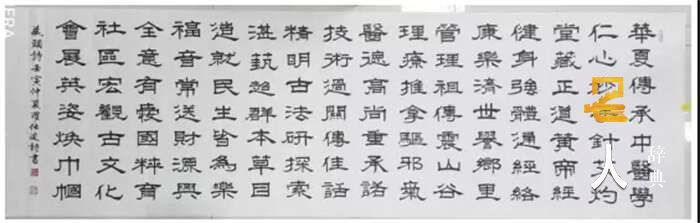 華夏傳承中醫學
仁心妙針艾灼
堂藏正道黃帝經
健身強體通經絡
康樂濟世譽鄉里
管理祖傳震山谷
理療推拿驅邪氣
醫德高尚重承諾
技術過關傳佳話
精明古法研探索
湛藝超群本草目
造就民生皆為樂
福音常送財源興
全意有國粹育
社區宏觀古文化
會展英姿煥巾幗
藏頭詩壬寅仲夏仕詩書
名人辭典
ERA